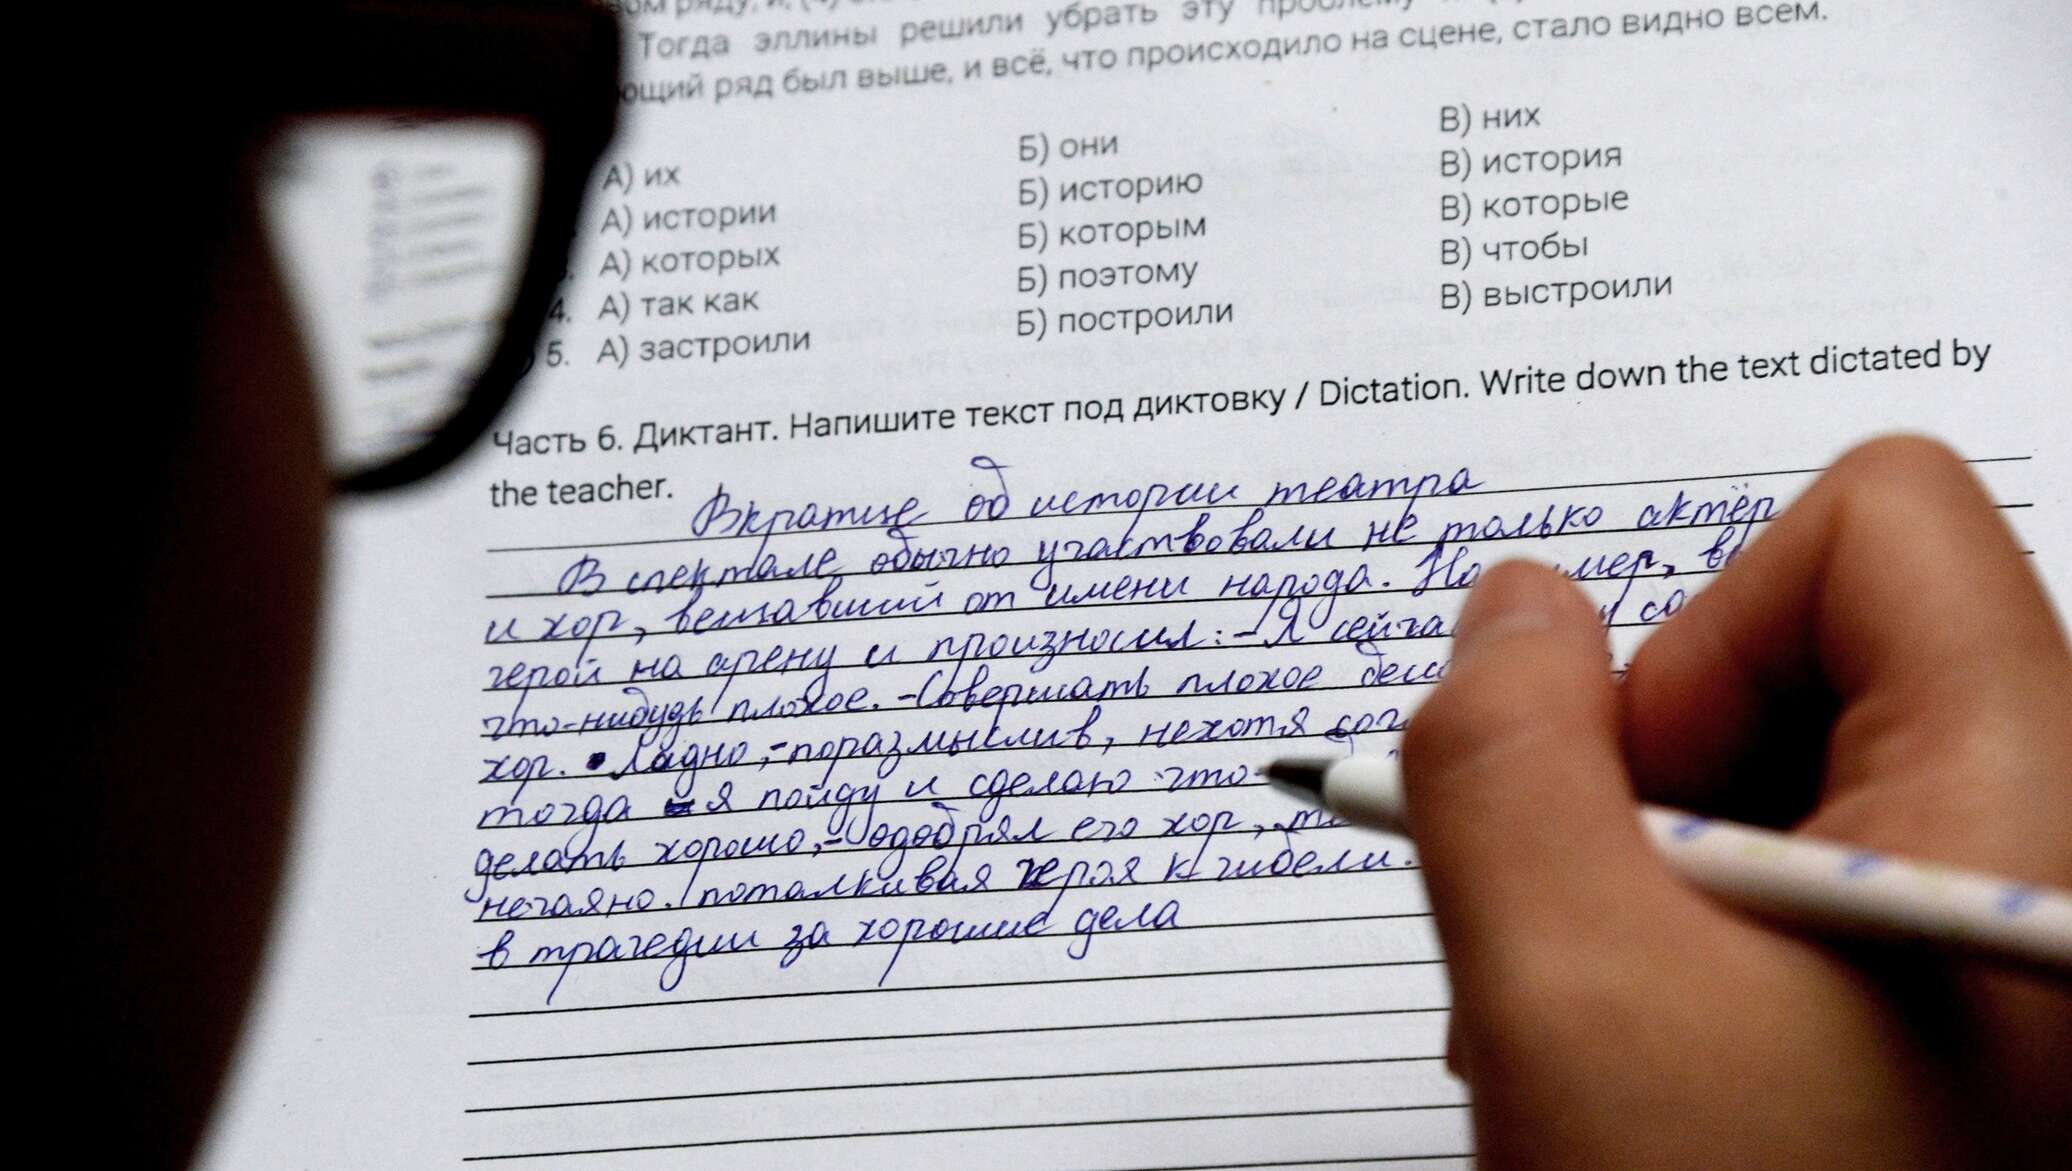 Тогда эллины решили убрать эту проблему
ряд был выше, и всё, что происходило на сцене, стало видно всем.
А) их Б) они В) них
А) истории Б) историю В) история
А) которых Б) которым В) которые
4. А) так как Б) поэтому В) чтобы
5. А) застроили Б) построили В) выстроили
Часть 6. Диктант. Напишите текст под диктовку / Dictation. Write down the text dictated by
the teacher.
Вкратце об истории театра
В спектале обычно участвовали не только актёр
и хор, вещавший от имени народа.
герой на арену и произносил: - Я
что-нибудь плохое. - Совершать плохое
хор. Ладно, - поразмыслив, нехотя
тогда я пойду и сделаю что-
делать хорошо, - одобрял его хор,
нечаяно поталкивая героя к гибели.
в трагедии за хорошие дела